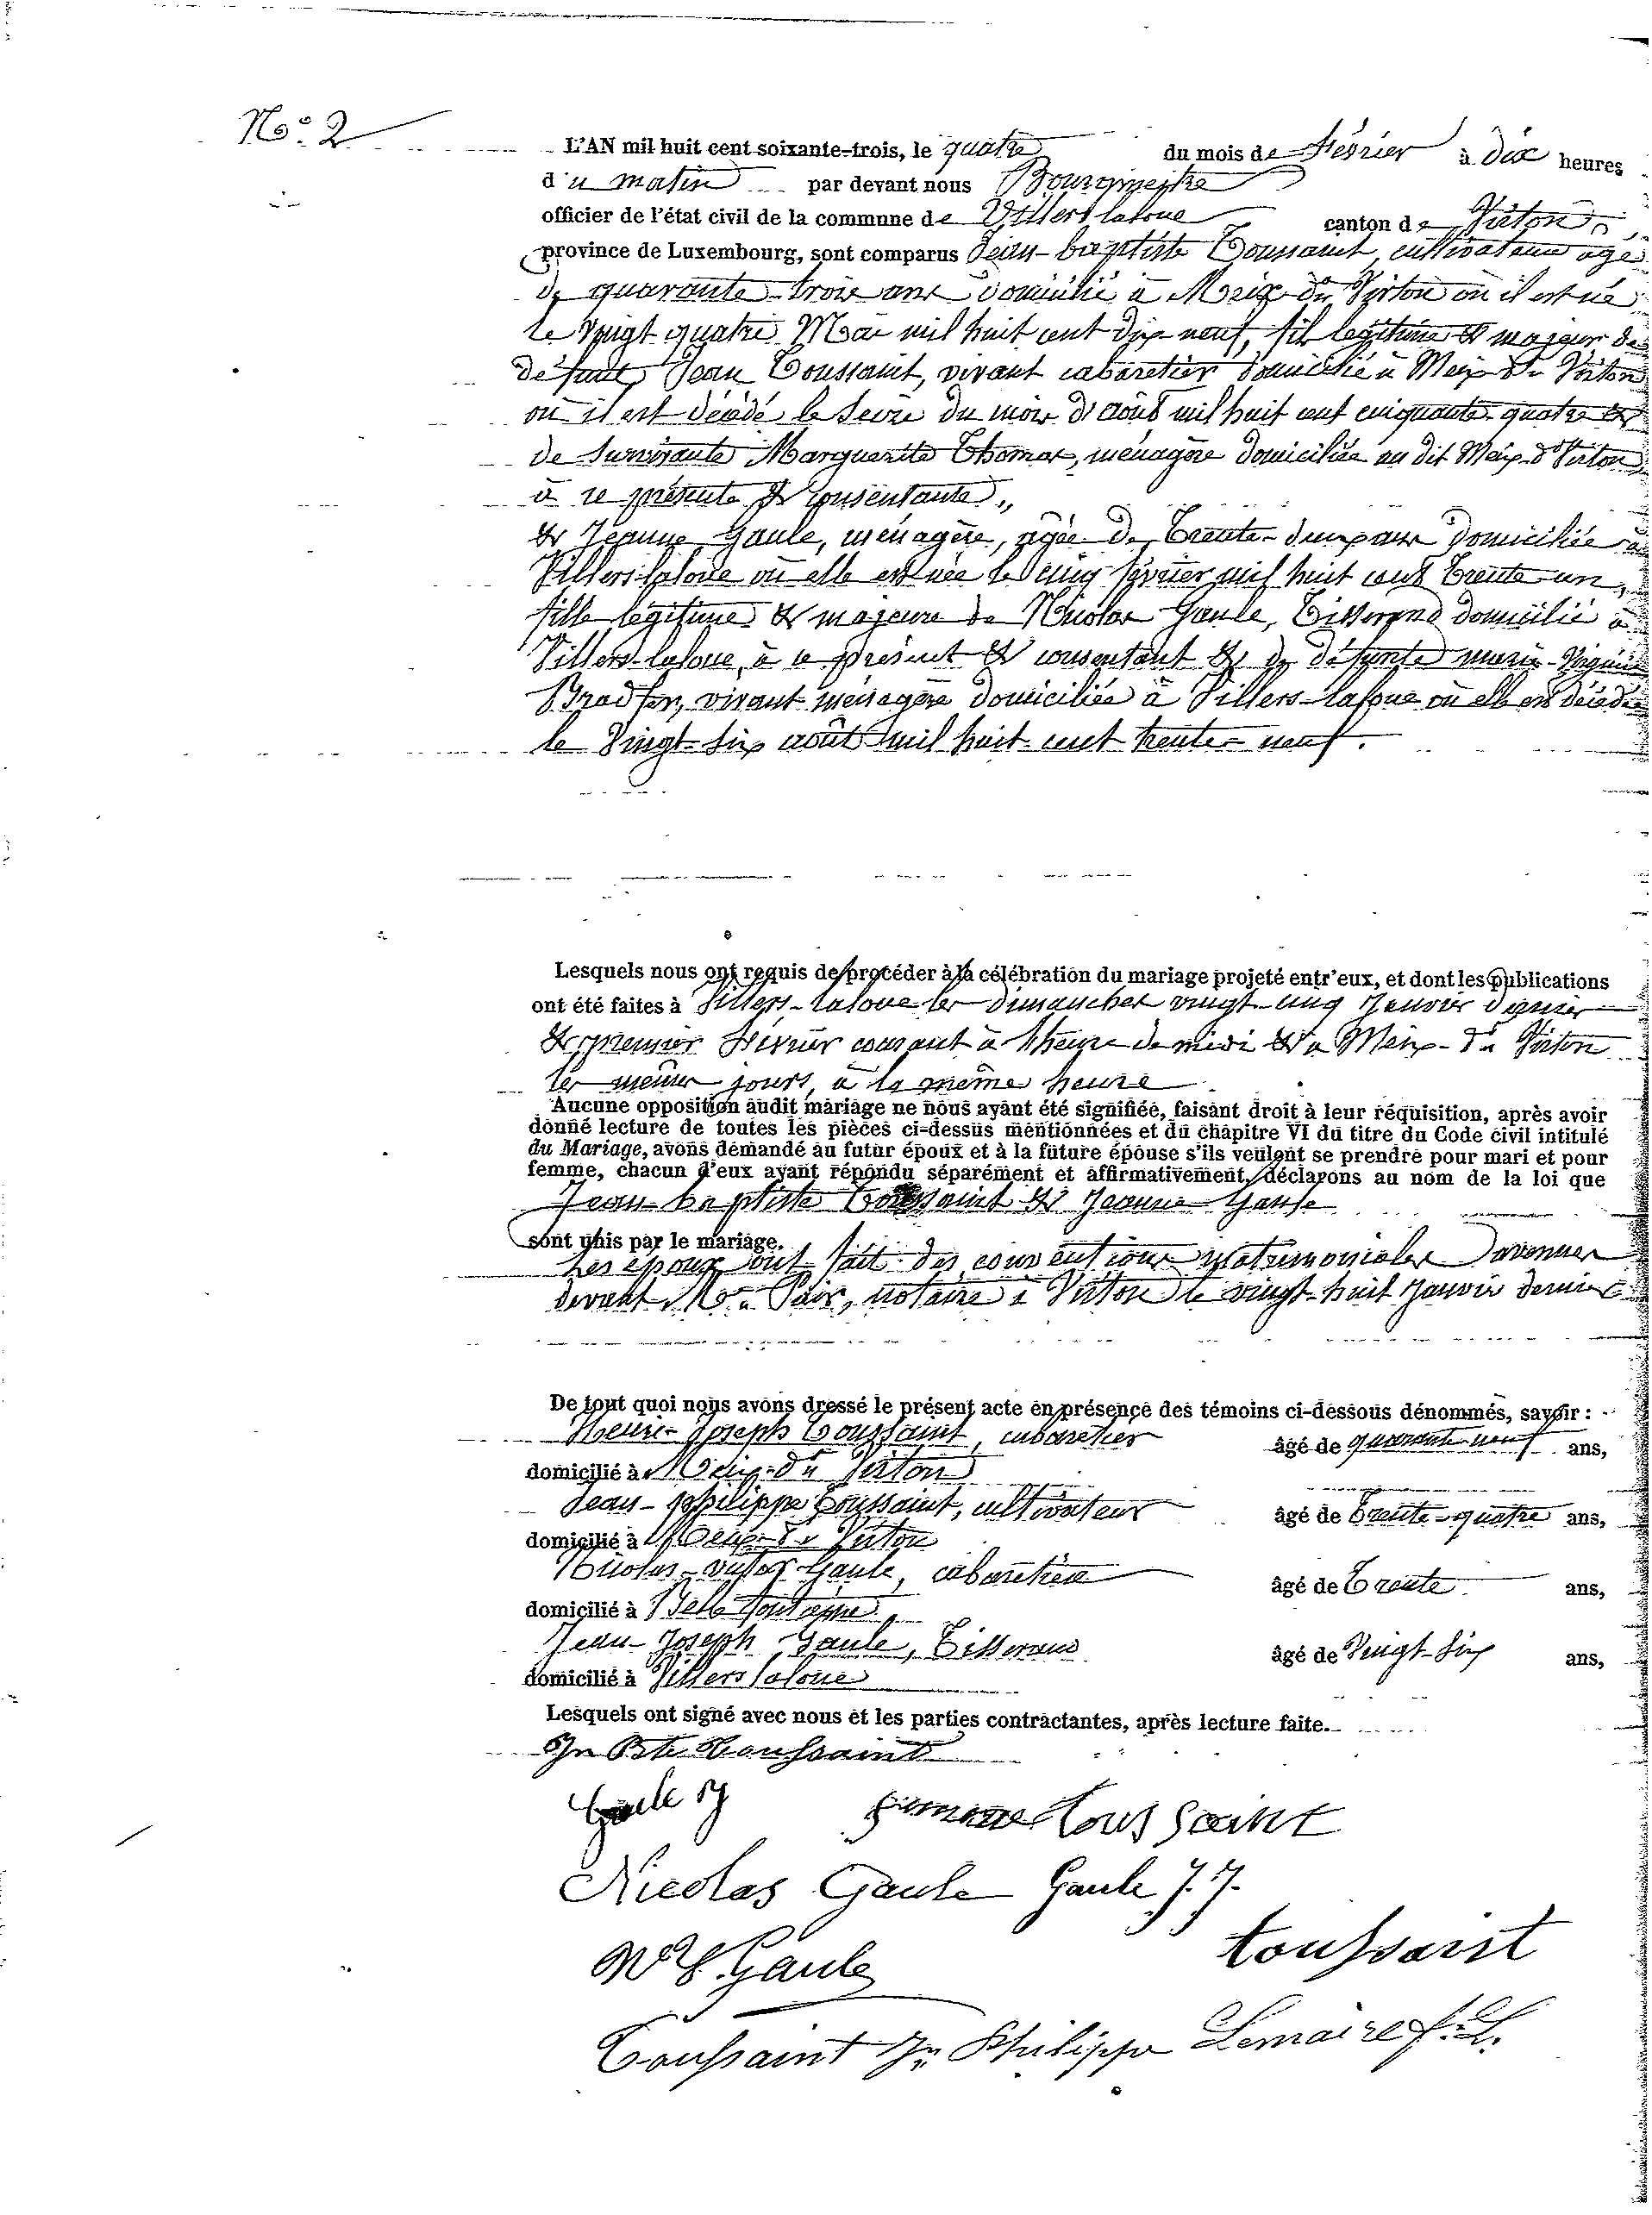 No. 2
L'AN mil huit cent soixante-trois, le quatre du mois de février à dix heures
du matin par devant nous Bourgmestre
officier de l'état civil de la commune de Villers laloue canton de Virton,
province de Luxembourg, sont comparus Jean-baptiste Toussaint, cultivateur agé
de quarante-trois ans domicilié à Meix-dt Virton où il est né
le vingt quatre Mai mil huit cent dix-neuf, fils légitime & majeur de
défunt Jean Toussaint, vivant cabaretier domicilié à Meix dt Virton
où il est décédé le seize du mois d'août mil huit cent cinquante-quatre &
de survivante Marguerite Thomas, ménagère domiciliée au dit Meix-dt Virton
à ce présente & consentante,
& Jeanne Gaule, ménagère, agée de Trente-deux ans domiciliée à
Villers-laloue où elle est née le cinq février mil huit cent trente-un,
fille légitime & majeure de Nicolas Gaule, Tisserand domicilié à
Villers-laloue, à ce présent & consentant & de défunte marie-
vivant ménagère domiciliée à Villers-laloue où elle est décédée
le vingt-six août mil huit cent trente-neuf.
Lesquels nous ont requis de procéder à la célébration du mariage projeté entr'eux, et dont les publications
ont été faites à Villers-laloue les dimanches vingt-cinq janvier dernier
& premier février courant à l'heure de midi & à Meix-dt Virton
les mêmes jours, à la même heure
Aucune opposition audit mariage ne nous ayant été signifiée, faisant droit à leur réquisition, après avoir
donné lecture de toutes les pièces ci-dessus mentionnées et du chapitre VI du titre du Code civil intitulé
du Mariage, avons demandé au futur époux et à la future épouse s'ils veulent se prendre pour mari et pour
femme, chacun d'eux ayant répondu séparément et affirmativement, déclarons au nom de la loi que
Jean-baptiste Toussaint & Jeanne Gaule
sont unis par le mariage.
Les époux ont fait des conventions matrimoniales
devant Me notaire à Virton le vingt-huit janvier dernier
De tout quoi nous avons dressé le présent acte en présence des témoins ci-dessous dénommés, savoir :
Henri-Joseph Toussaint, cabaretier âgé de quarante-neuf ans,
domicilié à Meix-dt Virton
Jean-philippe Toussaint, cultivateur âgé de trente-quatre ans,
domicilié à Meix-dt Virton
Nicolas- Gaule, cabaretier âgé de Trente ans,
domicilié à Bellefontaine
Jean-Joseph Gaule, Tisserand âgé de vingt-six ans,
domicilié à Villers laloue
Lesquels ont signé avec nous et les parties contractantes, après lecture faite.
Jn Bte Toussaint
Gaule
Toussaint
Nicolas Gaule Gaule J.J.
Toussaint
Gaule
Toussaint Jn Philippe Lemaire